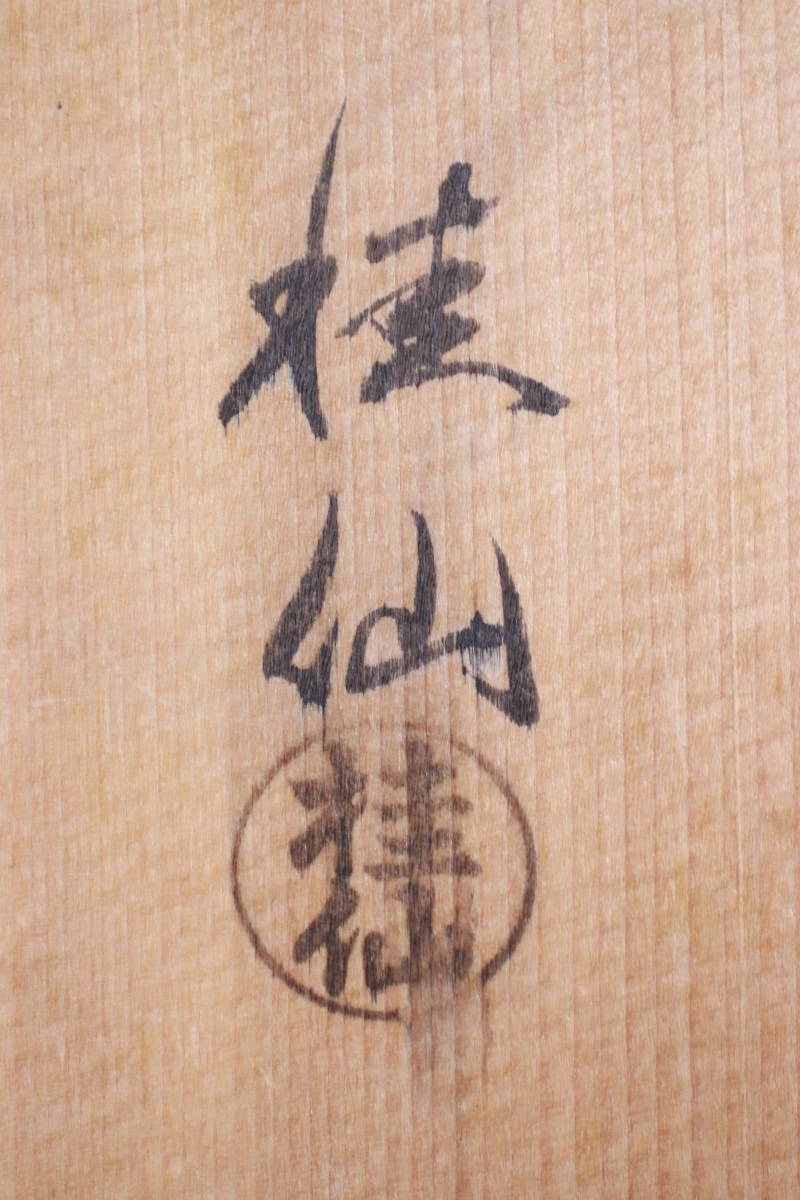 桂
仙
桂
仙